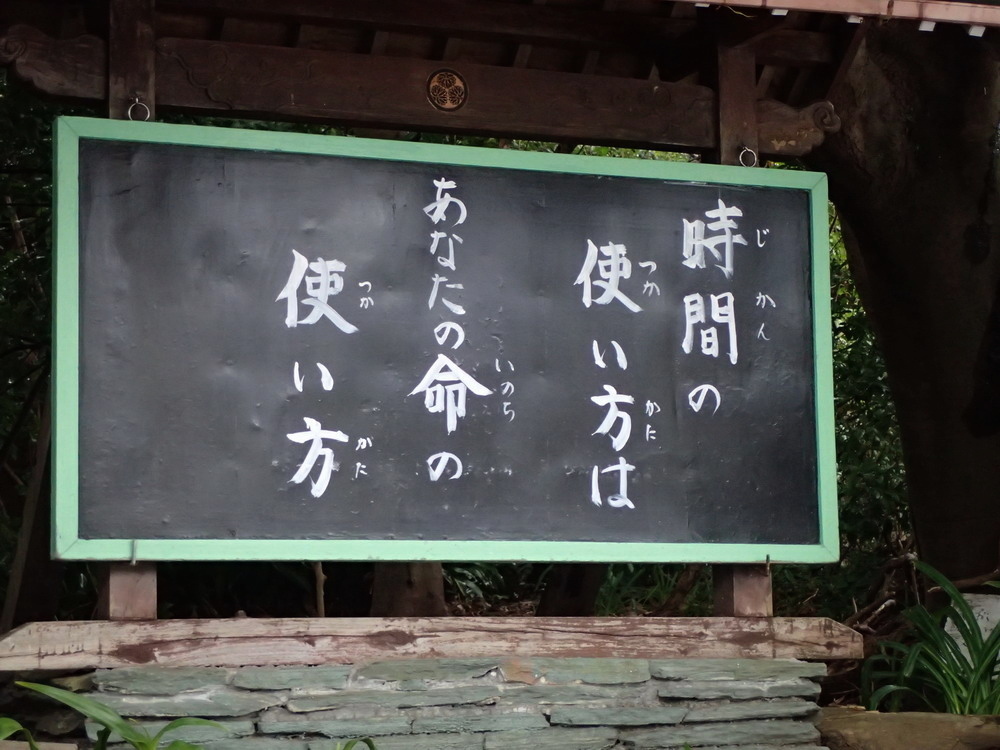 時間の
じかん
使い方は
つかかた
あなたの命の
いのち
使い方
つかがた